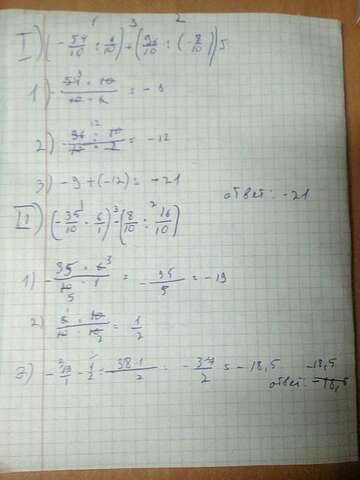 1 3 2
I) (-54/10 : 6/10) + (96/10 : (-8/10)) =
1) - 54 · 10 / 10 · 6 = -9
2) - 96 · 10 / 10 · 8 = -12
3) -9 + (-12) = -21
ответ: -21
II) (-35/10 · 6/1) - (8/10 : 16/10)
1) - 35 · 6 3 / 10 5 · 1 = - 95/5 = -19
2) 8 · 10 / 10 · 16 2 = 1/2
3) - 19/1 - 1/2 = 38-1/2 = - 37/2 = -18,5
-18,5
ответ: